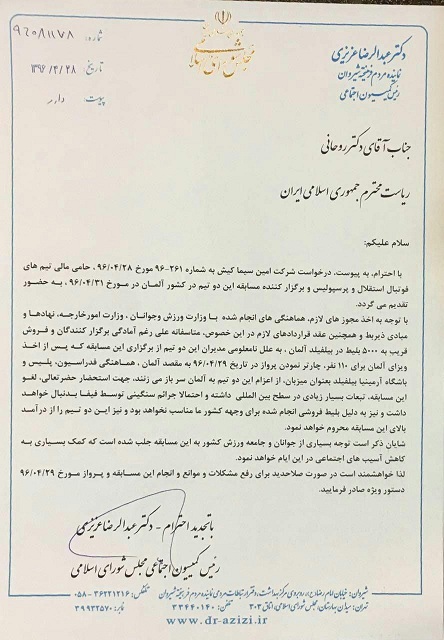 شماره: ۹۶۰۸۱۱۷۸
تاریخ: ۱۳۹۶/۴/۲۸
پیوست: دارد
مجلس شورای اسلامی
دکتر عبدالرضا عزیزی
نماینده مردم فرهیخته شیروان
رئیس کمیسیون اجتماعی
جناب آقای دکتر روحانی
ریاست محترم جمهوری اسلامی ایران
سلام علیکم:
با احترام، به پیوست، درخواست شرکت امین سیما کیش به شماره ۲۶۱-۹۶ مورخ ۹۶/۰۴/۲۸ ، حامی مالی تیم های
فوتبال استقلال و پرسپولیس و برگزار کننده مسابقه این دو تیم در کشور آلمان در مورخ ۹۶/۰۴/۳۱ ، به حضور
تقدیم می گردد.
با توجه به اخذ مجوز های لازم، هماهنگی های انجام شده با وزارت ورزش وجوانان ، وزارت امورخارجه، نهادها و
مبادی ذیربط و همچنین عقد قراردادهای لازم در این خصوص، متاسفانه علی رغم آمادگی برگزار کنندگان و فروش
قریب به ۵۰۰۰ بلیط در بیلفیلد آلمان ، به علل نامعلومی مدیران این دو تیم از برگزاری این مسابقه که پس از اخذ
ویزای آلمان برای ۱۱۰ نفر، چارتر نمودن پرواز در تاریخ ۹۶/۰۴/۲۹ به مقصد آلمان ، هماهنگی فدراسیون، پلیس و
باشگاه آرمینیا بیلفیلد بعنوان میزبان، از اعزام این دو تیم به آلمان سر باز می زنند، جهت استحضار حضرتعالی، لغو
این مسابقه، تبعات بسیار زیادی در سطح بین المللی داشته و احتمالا جرائم سنگینی توسط فیفا بدنبال خواهد
داشت و نیز به دلیل بلیط فروشی انجام شده برای وجهه کشور ما مناسب نخواهد بود و نیز این دو تیم را از درآمد
بالای این مسابقه محروم خواهد نمود.
شایان ذکر است توجه بسیاری از جوانان و جامعه ورزش کشور به این مسابقه جلب شده است که کمک بسیاری به
کاهش آسیب های اجتماعی در این ایام خواهد نمود.
لذا خواهشمند است در صورت صلاحدید برای رفع مشکلات و موانع و انجام این مسابقه و پرواز مورخ ۹۶/۰۴/۲۹
دستور ویژه صادر فرمایید.
با تجدید احترام - دکتر عبدالرضا عزیزی
رئیس کمیسیون اجتماعی مجلس شورای اسلامی
شیروان: خیابان امام رضا(ع)، روبروی مرکز بهداشت، دفتر ارتباطات مردمی نماینده مردم فرهیخته شیروان تلفکس: ۳۶۲۲۱۲۱۶ - ۰۵۸
تهران: میدان بهارستان، مجلس شورای اسلامی، اتاق ۳۰۳ تلفن: ۳۳۴۴۰۱۴۰ نمابر: ۳۹۹۳۲۵۷۰
www.dr-azizi.ir